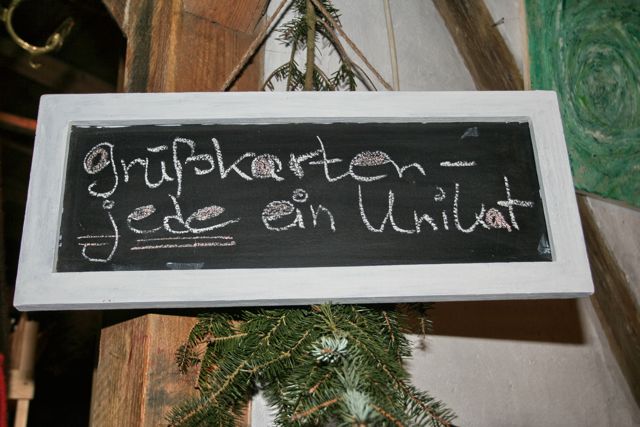 grüßkarten -
jede ein Unikat